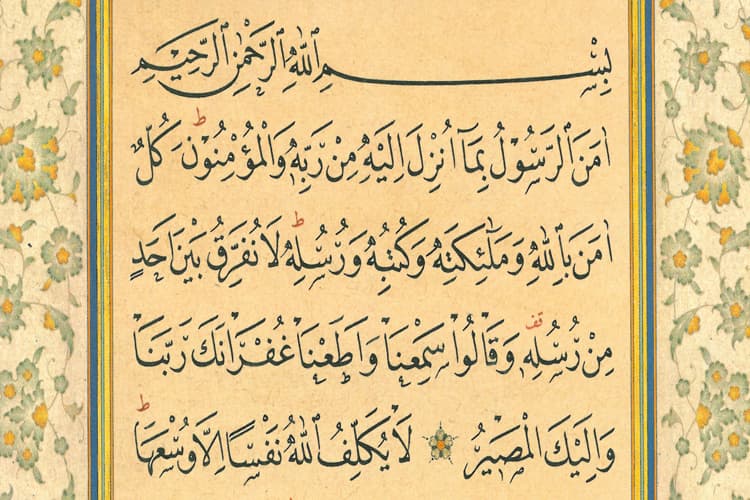 بِسْمِ اللّٰهِ الرَّحْمٰنِ الرَّحِيمِ
اٰمَنَ الرَّسُوْلُ بِمَٓا اُنْزِلَ اِلَيْهِ مِنْ رَبِّهٖ وَالْمُؤْمِنُوْنَ ط كُلٌّ
اٰمَنَ بِاللّٰهِ وَمَلٰٓئِكَتِهٖ وَكُتُبِهٖ وَرُسُلِهٖ ط لَا نُفَرِّقُ بَيْنَ اَحَدٍ
مِنْ رُسُلِهٖ قف وَقَالُوْا سَمِعْنَا وَاَطَعْنَا غُفْرَانَكَ رَبَّنَا
وَاِلَيْكَ الْمَصِيْرُ لَا يُكَلِّفُ اللّٰهُ نَفْسًا اِلَّا وُسْعَهَا ط